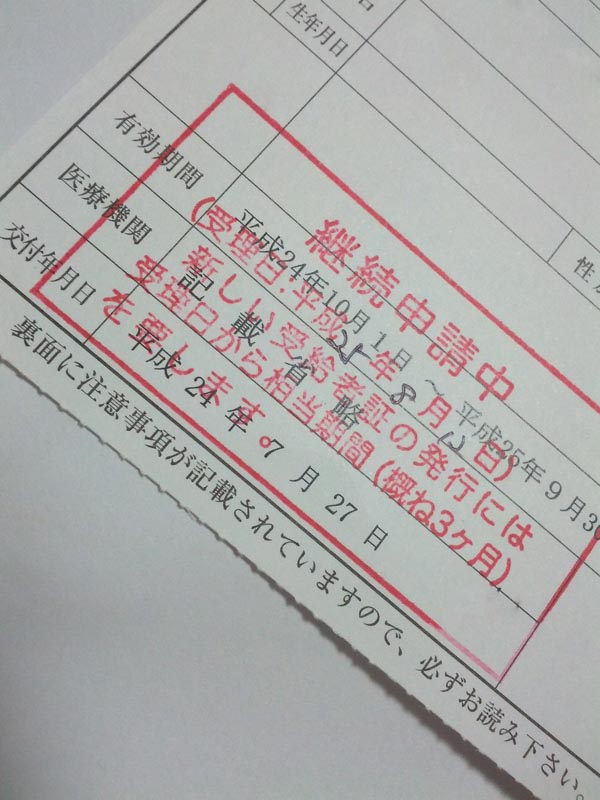 生年月日
有効期間 平成24年10月1日 ~ 平成25年9月30
医療機関 記載省略
交付年月日 平成 24 年 7 月 27 日
裏面に注意事項が記載されていますので、必ずお読み下さい。
継続申請中
(受理日:平成25年8月12日)
新しい受給者証の発行には
受理日から相当期間(概ね3ケ月)
を要します。